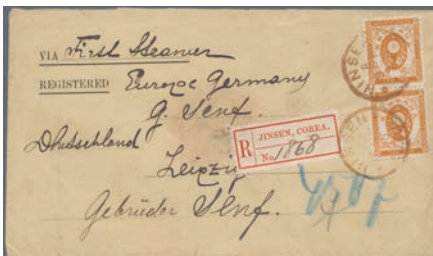 VIA First Steamer
REGISTERED Europe Germany
G. Senf.
Deutschland
R JINSEN, COREA.
No. 1868
Leipzig
Gebrüder Senf.